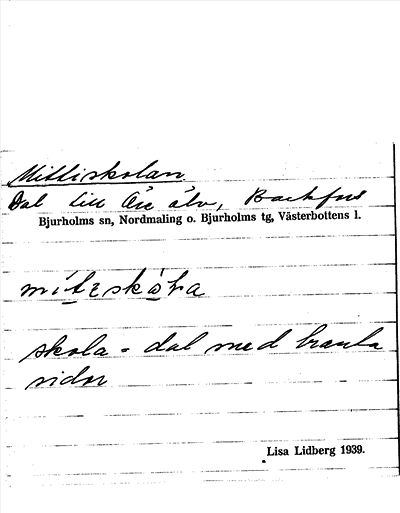 Mittiskolan
Dal till Öre älv, Backfors
Bjurholms sn, Nordmaling o. Bjurholms tg, Västerbottens l.
skola = dal med branta
sidor
Lisa Lidberg 1939.